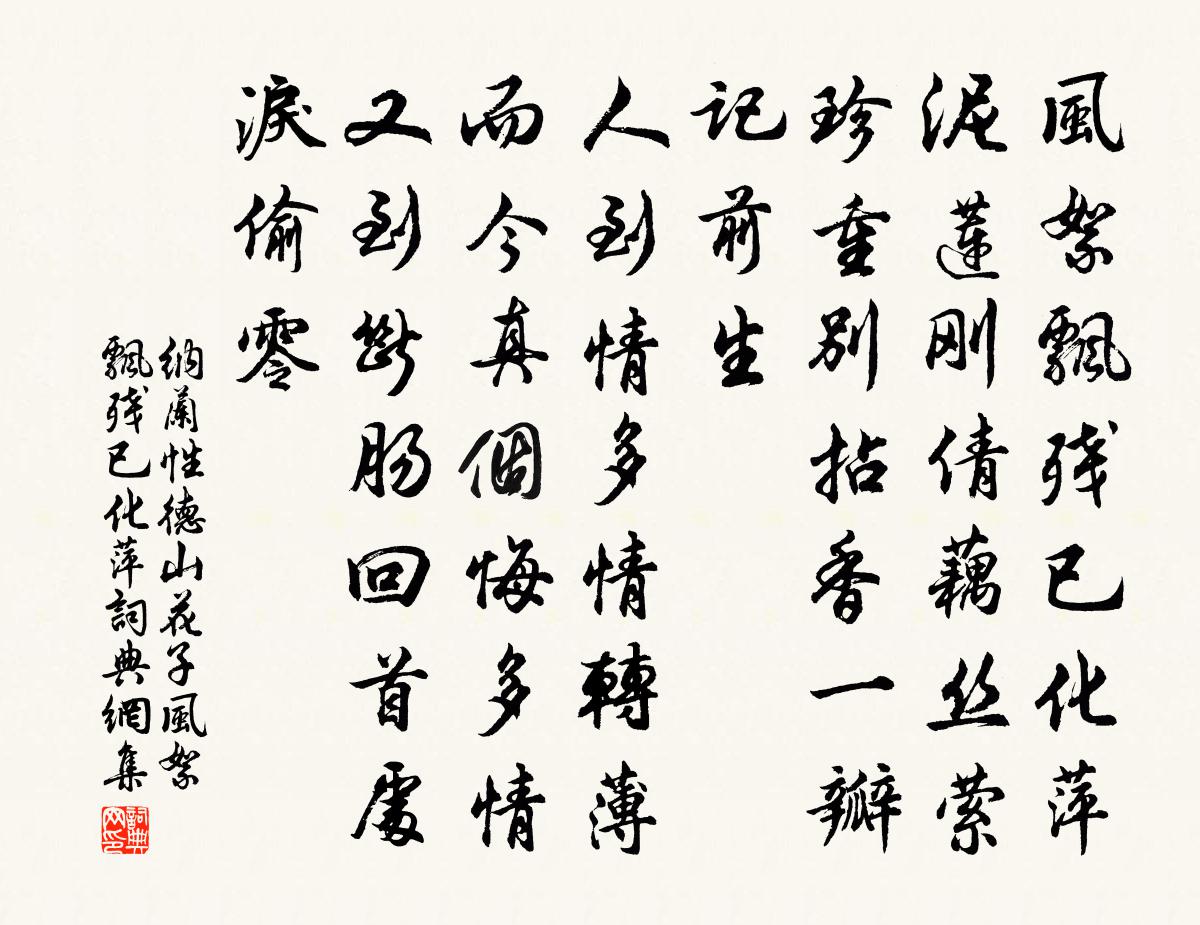 風絮飄残已化萍
泥蓮刚倩藕丝萦
珍重别拈香一瓣
記前生
人到情多情轉薄
而今真個悔多情
又到斷肠回首處
淚偷零
納蘭性德山花子風絮
飄残已化萍詞典網集
詞典
网印